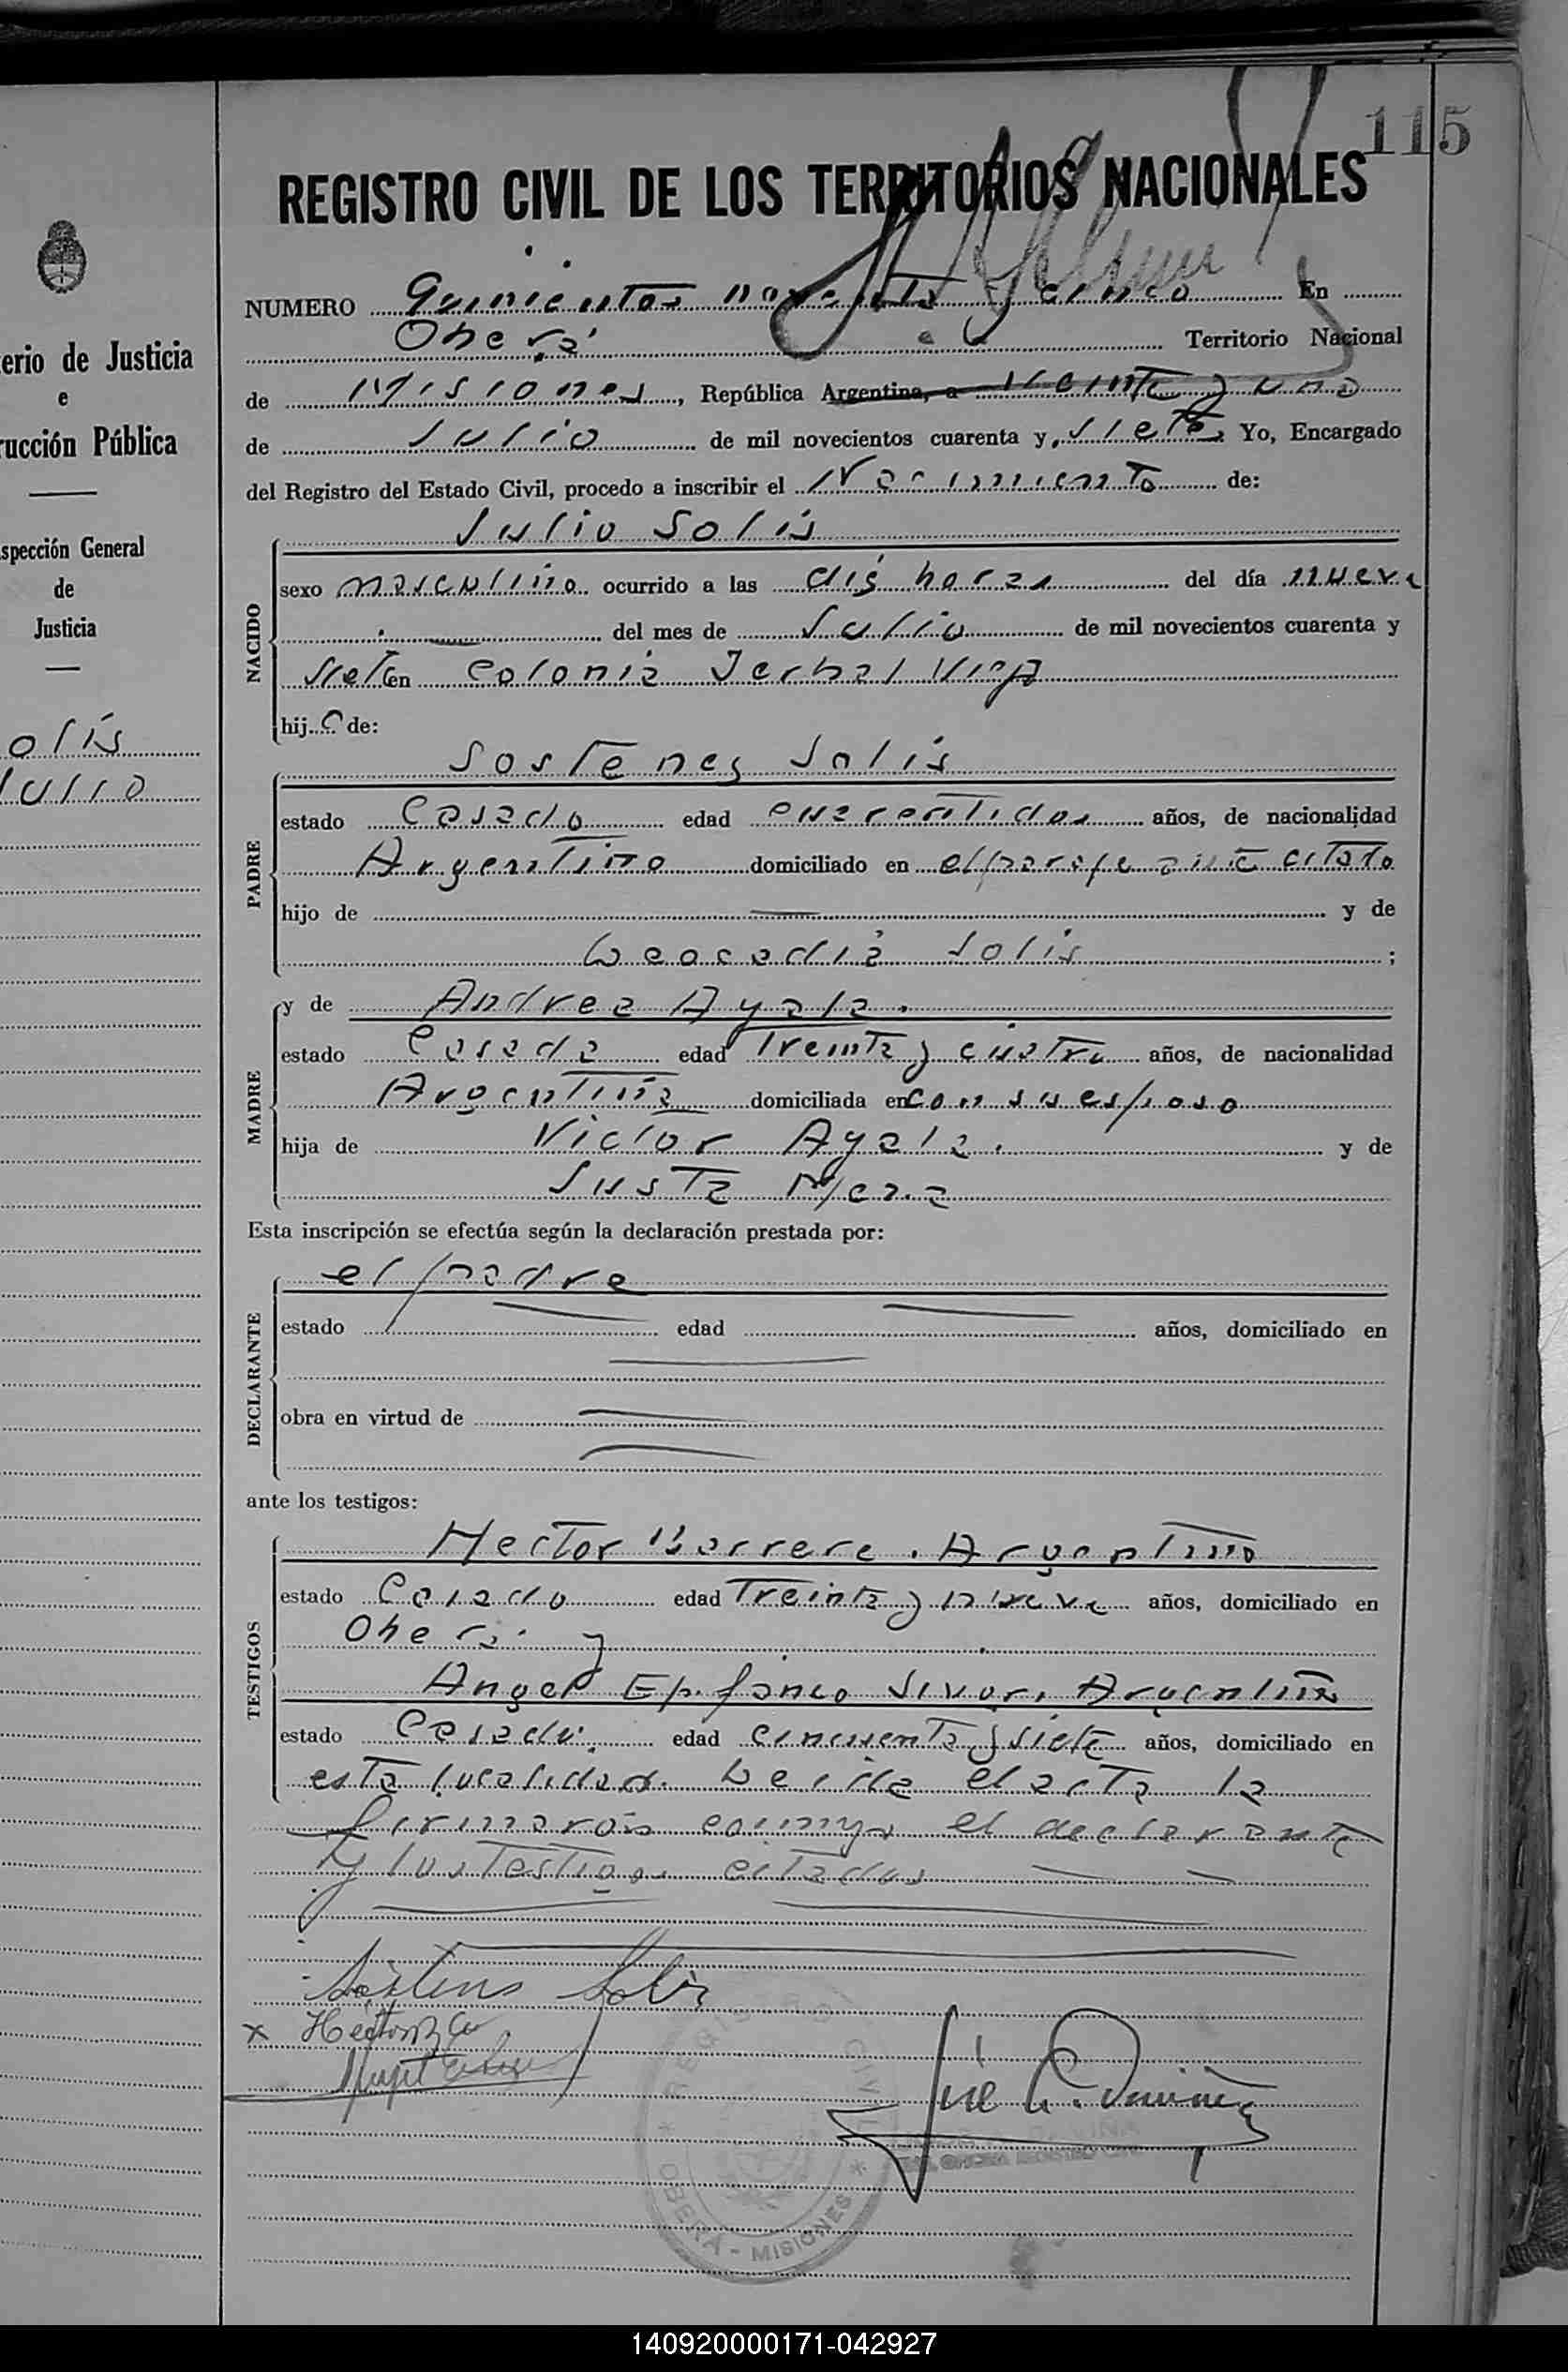 115
REGISTRO CIVIL DE LOS TERRITORIOS NACIONALES
NUMERO Quinientos noventa y cinco En
Oberá Territorio Nacional
de Misiones, República Argentina, a Veinte y uno
de Julio de mil novecientos cuarenta y siete, Yo, Encargado
del Registro del Estado Civil, procedo a inscribir el Nacimiento de:
Julio Solis
NACIDO
sexo masculino ocurrido a las diés horas del día nueve
del mes de Julio de mil novecientos cuarenta y
siete en Colonia Yerbal Viejo
hijo de:
Sostenes Solis
PADRE
estado Casado edad cuarentidos años, de nacionalidad
Argentino domiciliado en el paraje ante citado
hijo de y de
Leocadia Solis ;
y de Andrea Ayala.
MADRE
estado Casada edad Treinta y cuatro años, de nacionalidad
Argentina domiciliada en con su esposo
hija de Victor Ayala. y de
Justa Meza
Esta inscripción se efectúa según la declaración prestada por:
el padre
DECLARANTE
estado edad años, domiciliado en
obra en virtud de
ante los testigos:
Hector Barrere. Argentino
TESTIGOS
estado Casado edad Treinta y nueve años, domiciliado en
Oberá y
Angel Epifanio Argentino
estado Casado. edad cincuenta y siete años, domiciliado en
esta localidad. Leida el acta la
firmaron conmigo el declarante
y los testigos citados
Sostenes Solis
REGISTRO CIVIL
OBERÁ - MISIONES
erio de Justicia
e
rucción Pública
spección General
de
Justicia
olis
ulio
140920000171-042927